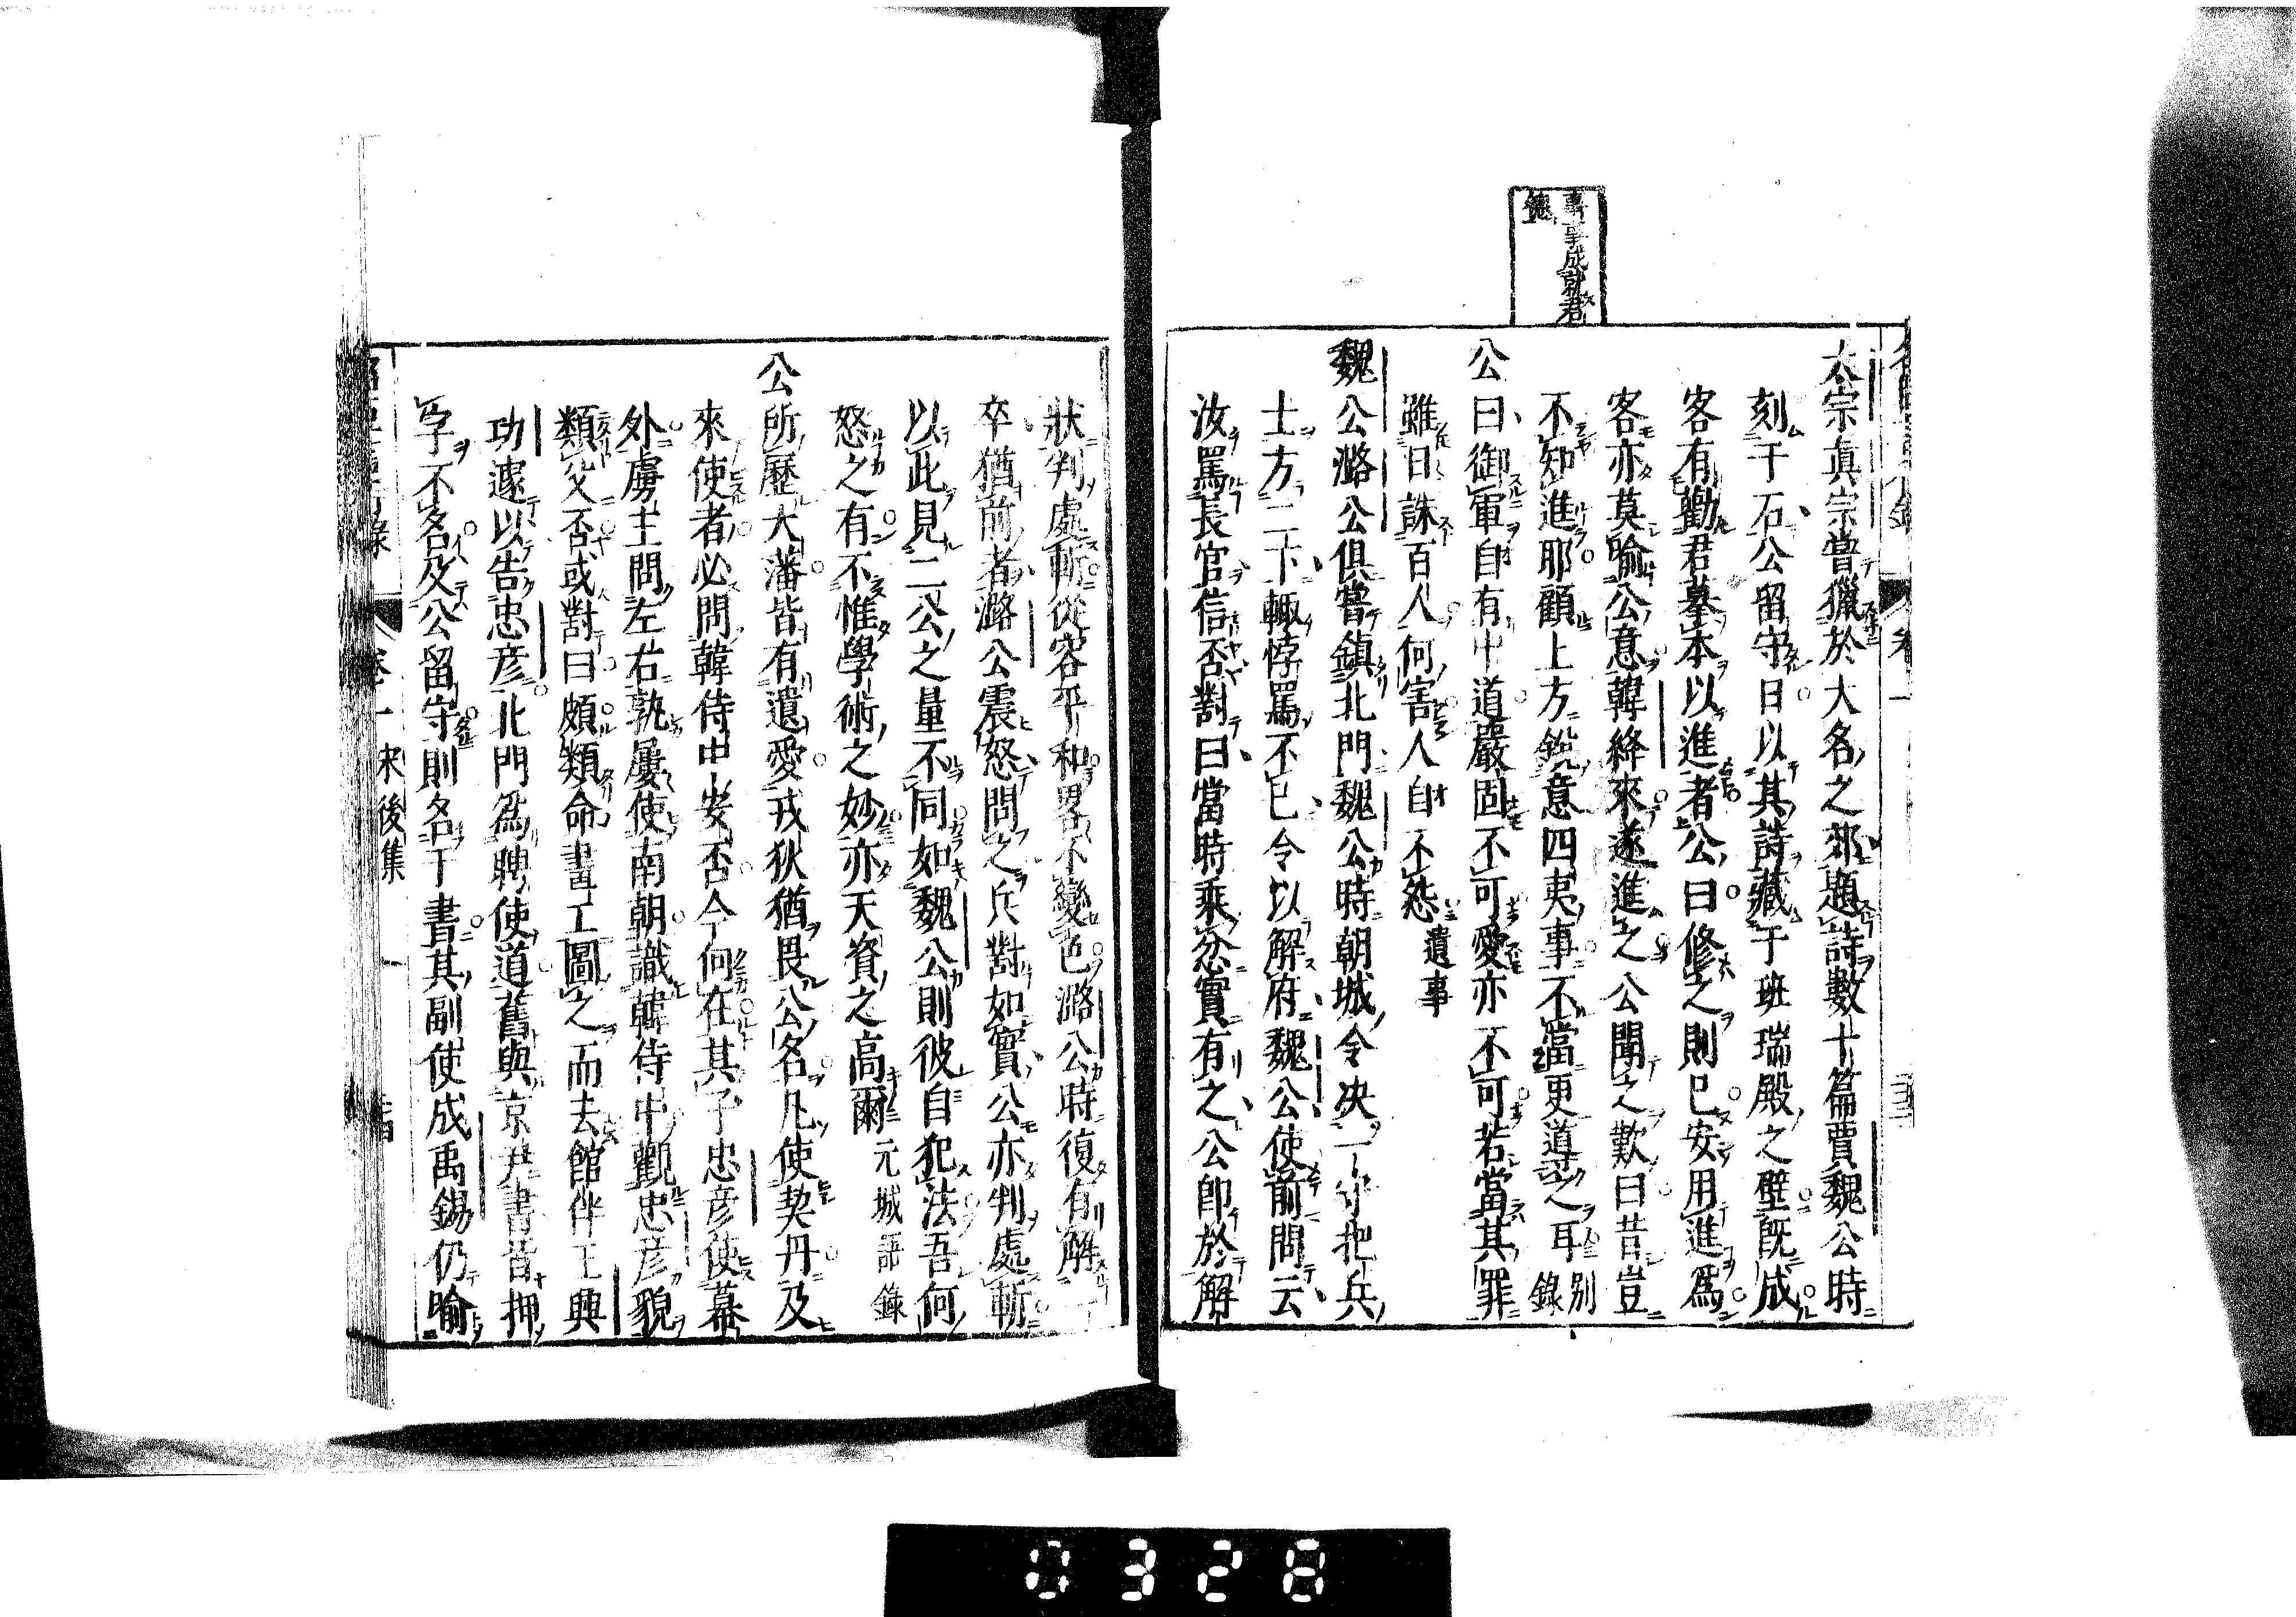 事事成就君
德
太宗真宗嘗獵於大名之郊題詩數十篇賈魏公時
刻于石公留守日以其詩藏于班瑞殿之壁既成
客有勸君摹本以進者公曰修之則已安用進爲
客亦莫喻公意韓絳來遂進之公聞之歎曰昔豈
不知進耶顧上方銳意四夷事不當更導之耳別錄
公曰御軍自有中道嚴固不可愛亦不可若當其罪
雖日誅百人何害人自不怨遺事
魏公潞公俱嘗鎮北門魏公時朝城令决一守把兵
士方二下輙悖罵不已令以解府魏公使前問云
汝罵長官信否對曰當時乘忿實有之公卽於解
狀判處斬從容平和畧不變色潞公時復有解一
卒猶前者潞公震怒問之兵對如實公亦判處斬
以此見二公之量不同如魏公則彼自犯法吾何
怒之有不惟學術之妙亦天資之高爾元城語錄
公所歷大藩皆有遺愛戎狄猶畏公名凡使契丹及
來使者必問韓侍中安否今何在其子忠彦使幕
外虜主問左右孰屢使南朝識韓侍中觀忠彦貌
類父否或對曰頗類命畫工圖之而去館伴王興
功遽以告忠彦北門爲聘使道舊與京尹書皆押
字不名及公留守則名于書其副使成禹錫仍喻
卷一 宋後集